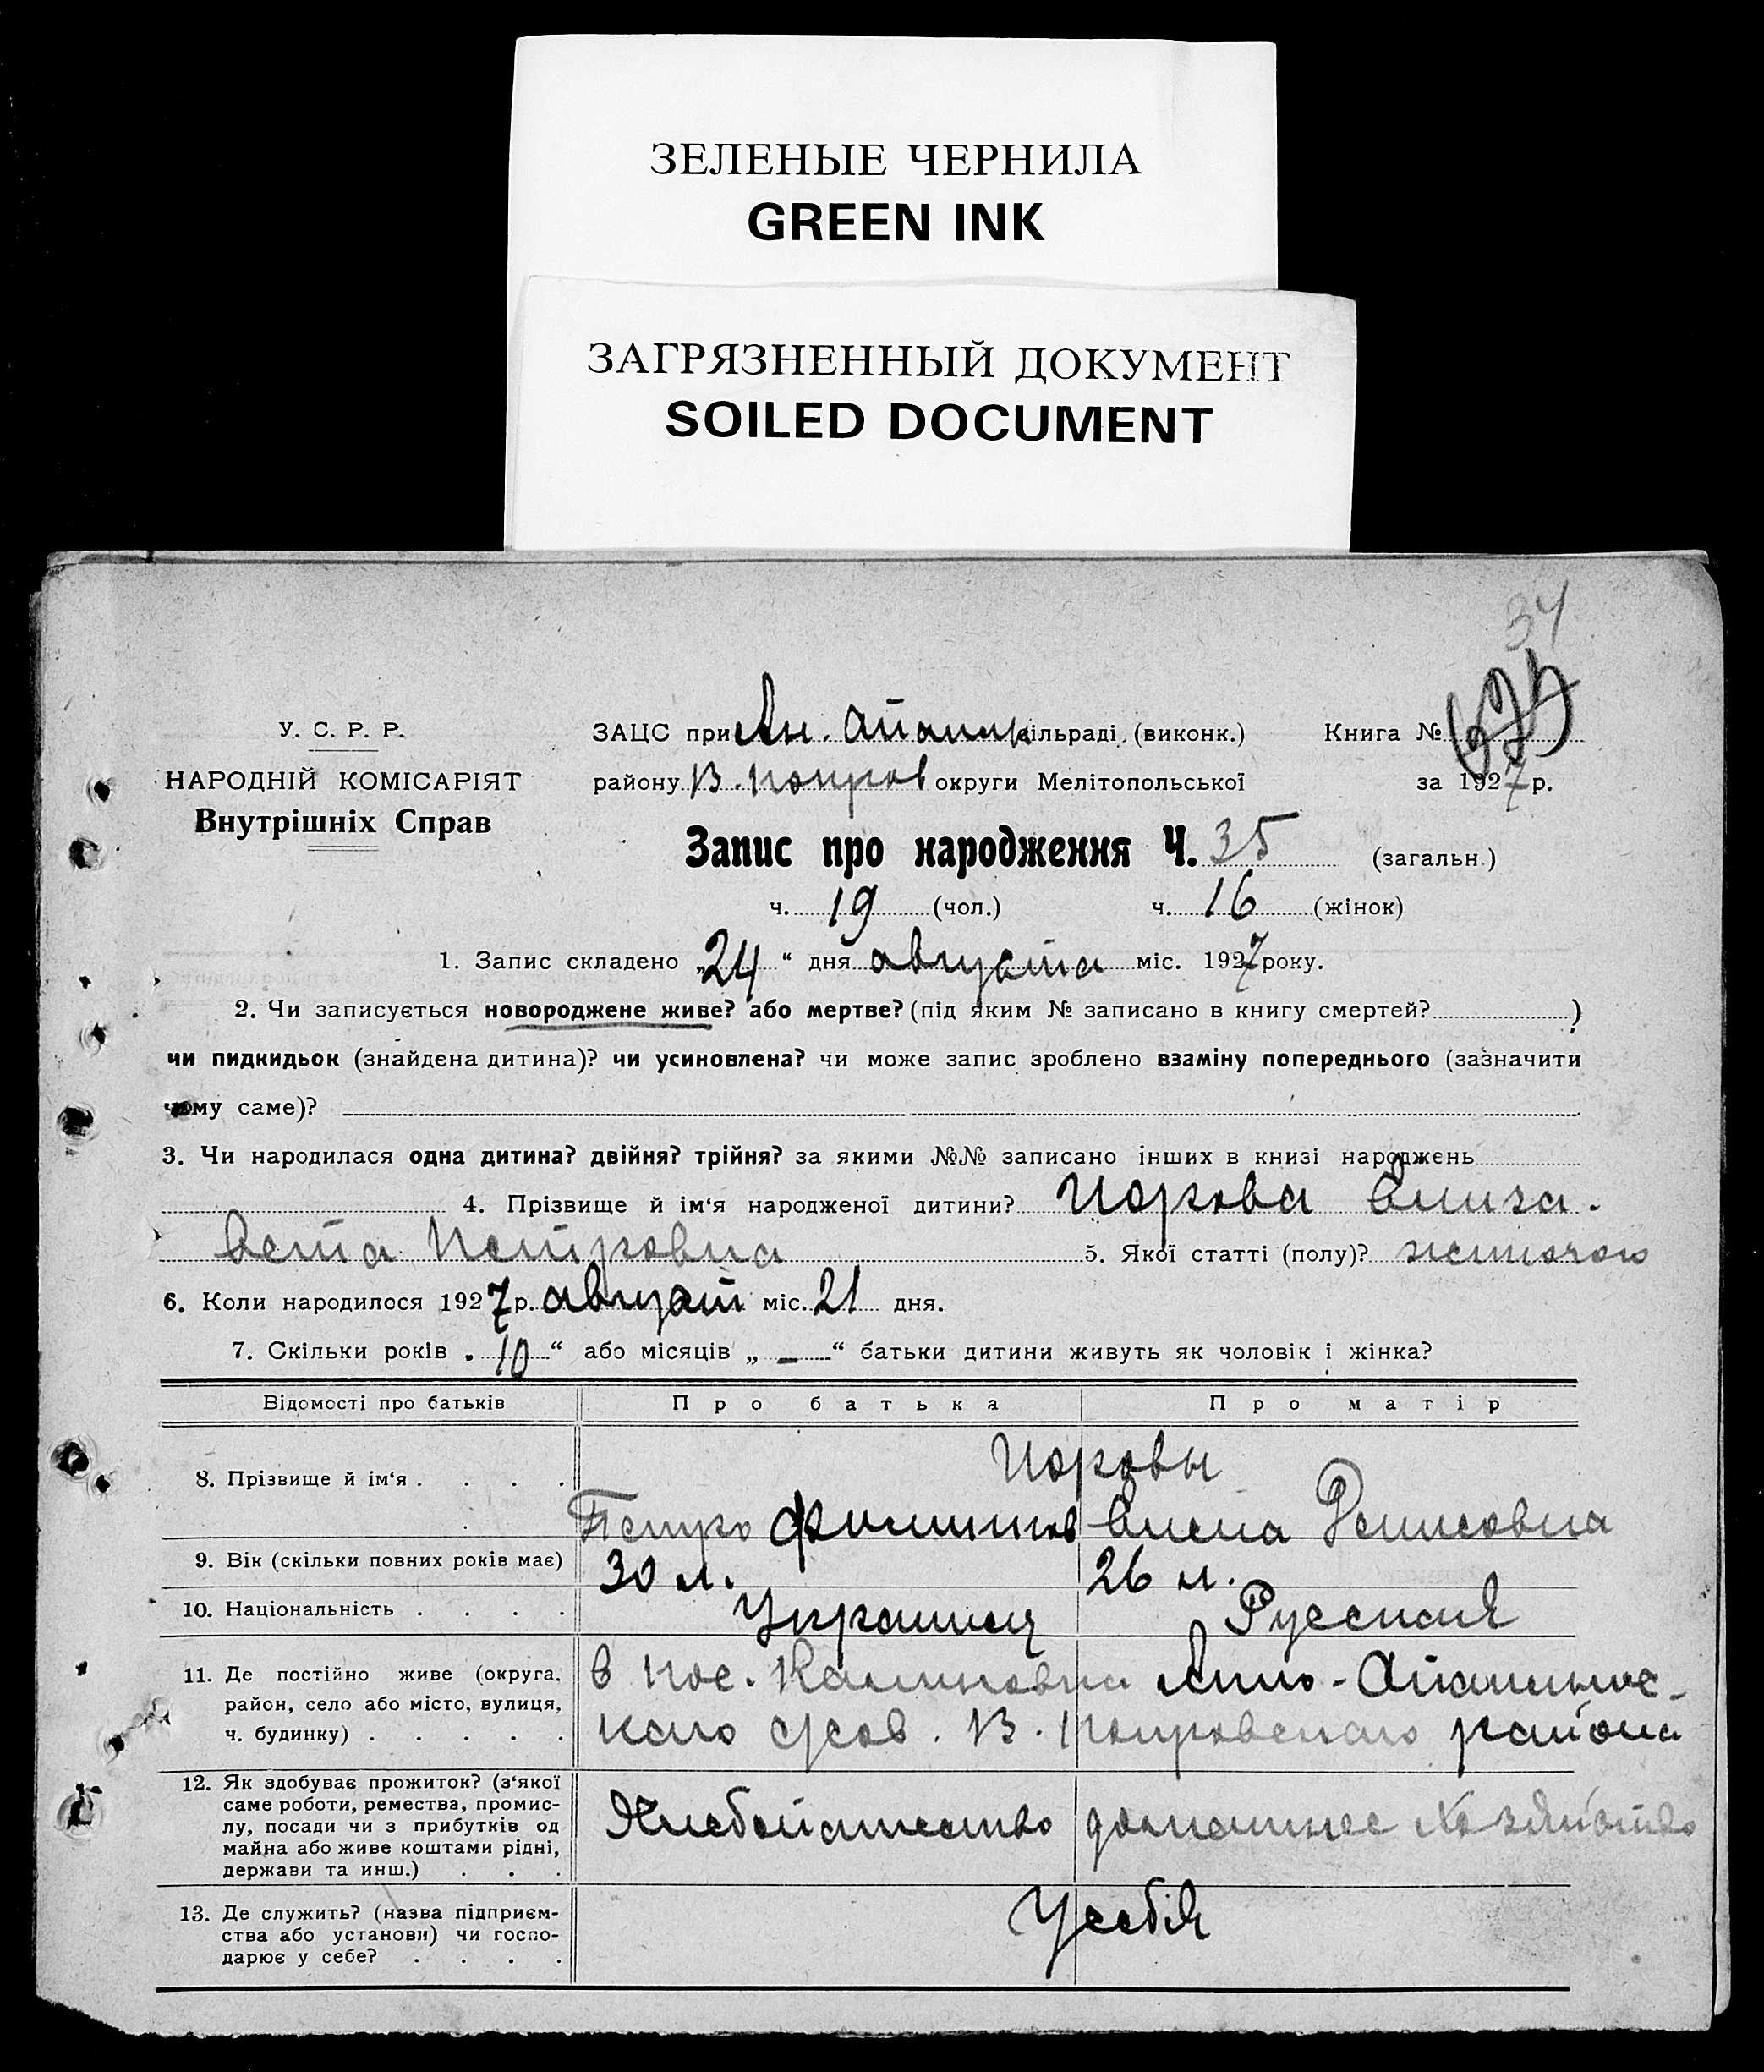 ЗЕЛЕНЫЕ ЧЕРНИЛА
GREEN INK
ЗАГРЯЗНЕННЫЙ ДОКУМЕНТ
SOILED DOCUMENT
34
У. С. Р. Р.
НАРОДНІЙ КОМІСАРІЯТ
Внутрішніх Справ
ЗАЦС при Ан. сільраді (виконк.) Книга №
району В. Покров округи Мелітопольської за 1927 р.
Запис про народження Ч. 35 (загальн.)
ч. 19 (чол.) ч. 16 (жінок)
1. Запис складено „24“ дня августа міс. 1927 року.
2. Чи записується новороджене живе? або мертве? (під яким № записано в книгу смертей? )
чи пидкидьок (знайдена дитина)? чи усиновлена? чи може запис зроблено взаміну попереднього (зазначити
чому саме)?
3. Чи народилася одна дитина? двійня? трійня? за якими №№ записано інших в книзі народжень
4. Прізвище й ім'я народженої дитини?
Петровна 5. Якої статті (полу)?
6. Коли народилося 1927 р. август міс. 21 дня.
7. Скільки років „10“ або місяців „ – “ батьки дитини живуть як чоловік і жінка?
Відомості про батьків Про батька Про матір
8. Прізвище й ім'я . . . .
Петро Филипов Елена Денисовна
9. Вік (скільки повних років має) 30 л. 26 л.
10. Національність . . . . Украинец Русская
11. Де постійно живе (округа, в пос. Калиновка
район, село або місто, вулиця,
ч. будинку) . . . . . В. Покровского района
12. Як здобуває прожиток? (з'якої
саме роботи, ремества, промис-
лу, посади чи з прибутків од Хлебопашество домашнее хозяйство
майна або живе коштами рідні,
держави та инш.) . . .
13. Де служить? (назва підприєм- У себя
ства або установи) чи госпо-
дарює у себе? . . . .